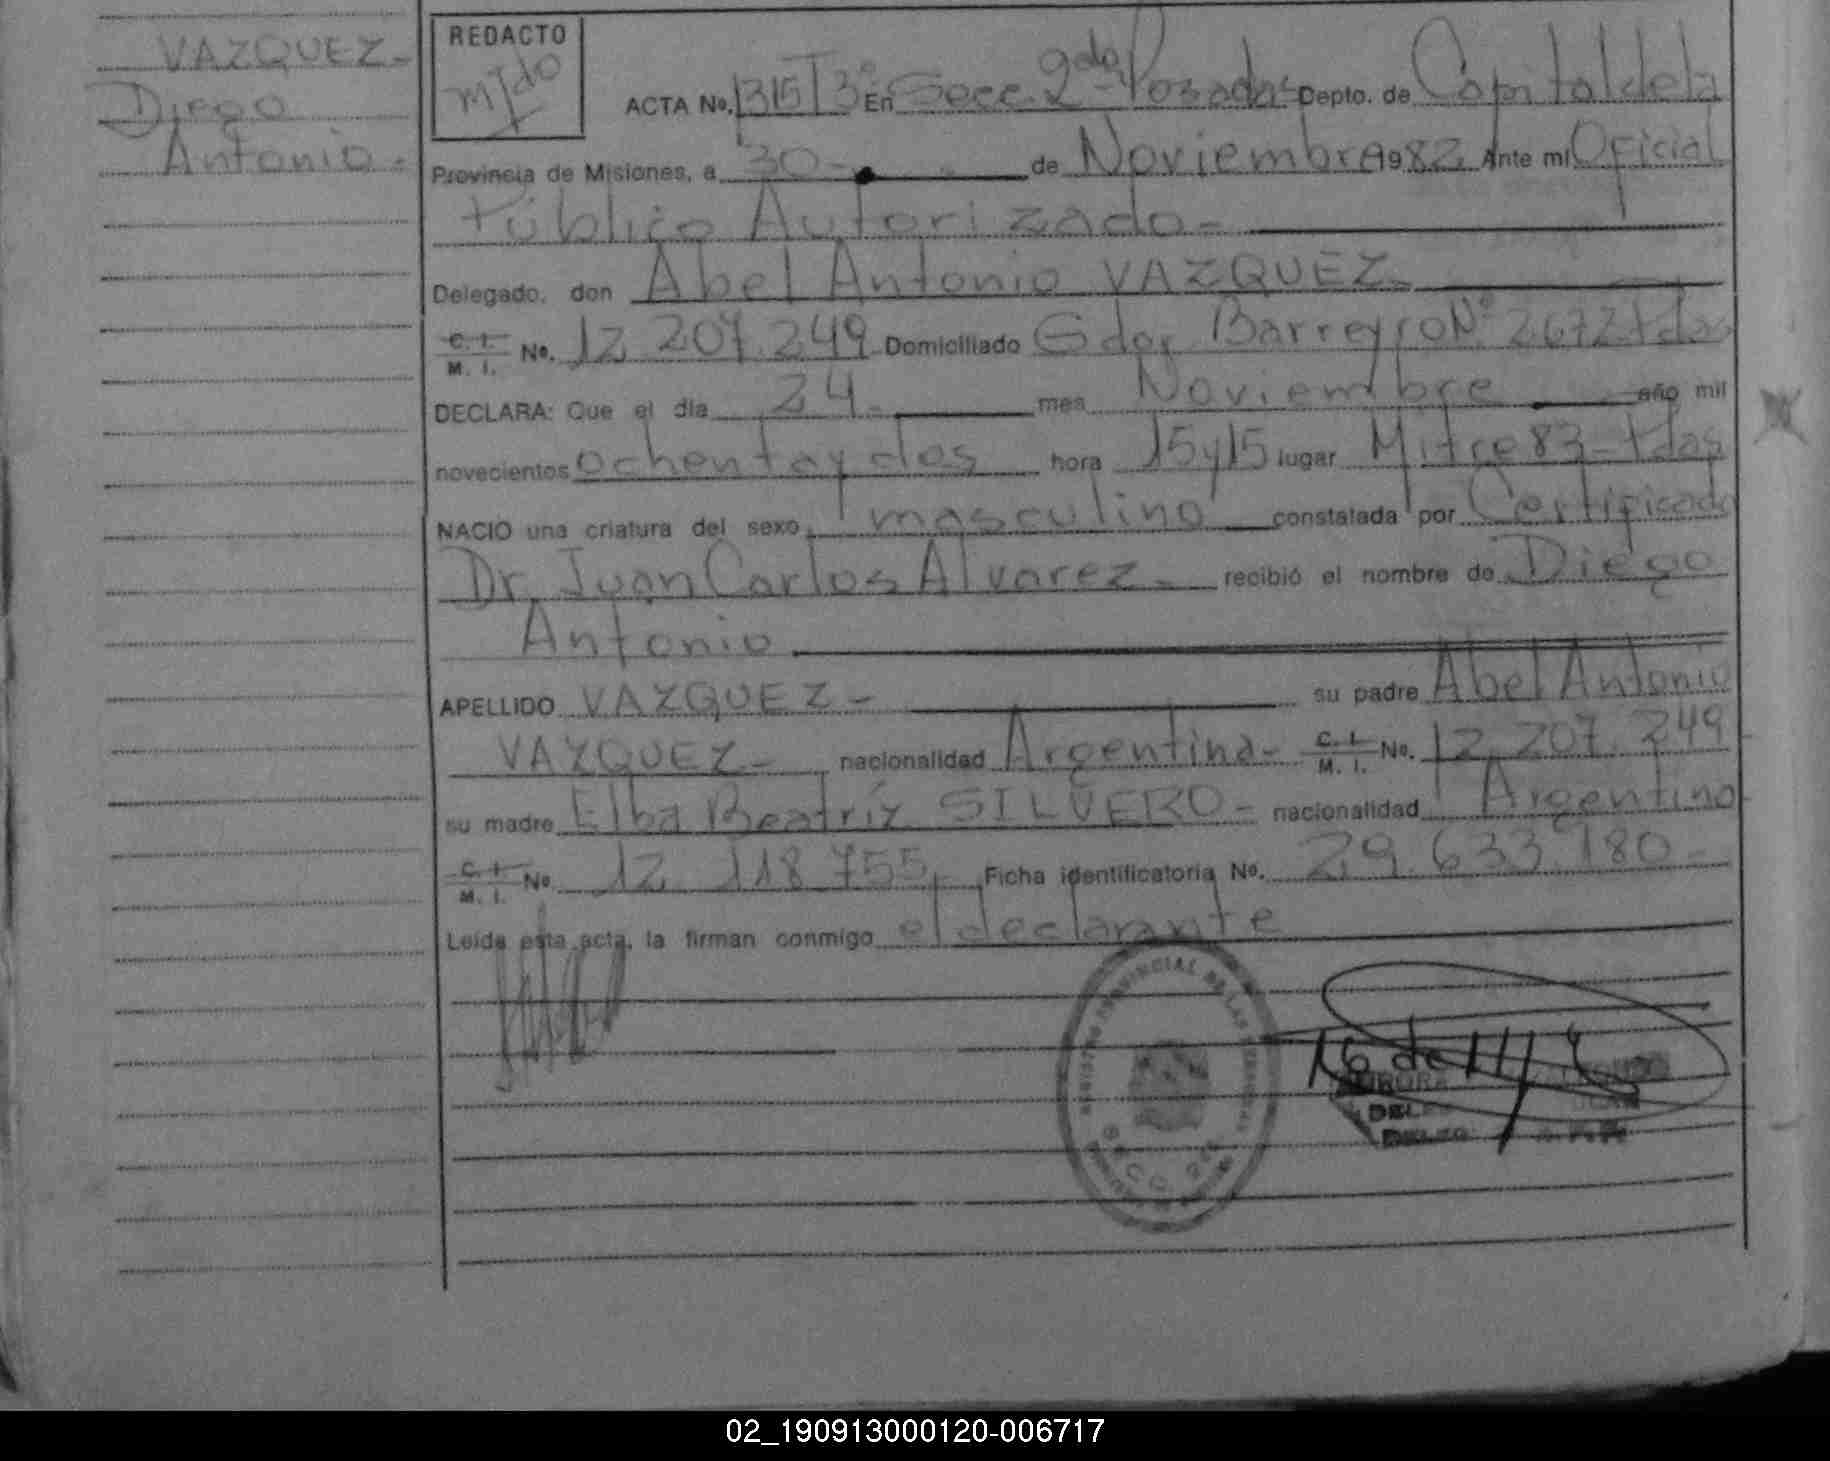 VAZQUEZ-
Diego
Antonio-
REDACTO
ACTA No. 1315 T3º En Secc. 2da Posadas Depto. de Capital de la
Provincia de Misiones, a 30- de Noviembre 1982 Ante mi Oficial
Público Autorizado-
Delegado, don Abel Antonio VAZQUEZ-
C. I. M. I. No. 12.207.249 Domiciliado Gdor. Barreyro Nº 2672-Pdas
DECLARA: Que el día 24- mes Noviembre año mil
novecientos ochenta y dos hora 15 y 15 lugar Mitre 83-Pdas
NACIO una criatura del sexo masculino constatada por Certificado
Dr. Juan Carlos Alvarez- recibió el nombre de Diego
Antonio
APELLIDO VAZQUEZ- su padre Abel Antonio
VAZQUEZ- nacionalidad Argentina- C. I. M. I. No. 12.207.249
su madre Elba Beatriz SILVERO- nacionalidad Argentina
C. I. M. I. No. 12.118.755 Ficha identificatoria No. 29.633.180-
Leída esta acta, la firman conmigo el declarante
02_190913000120-006717